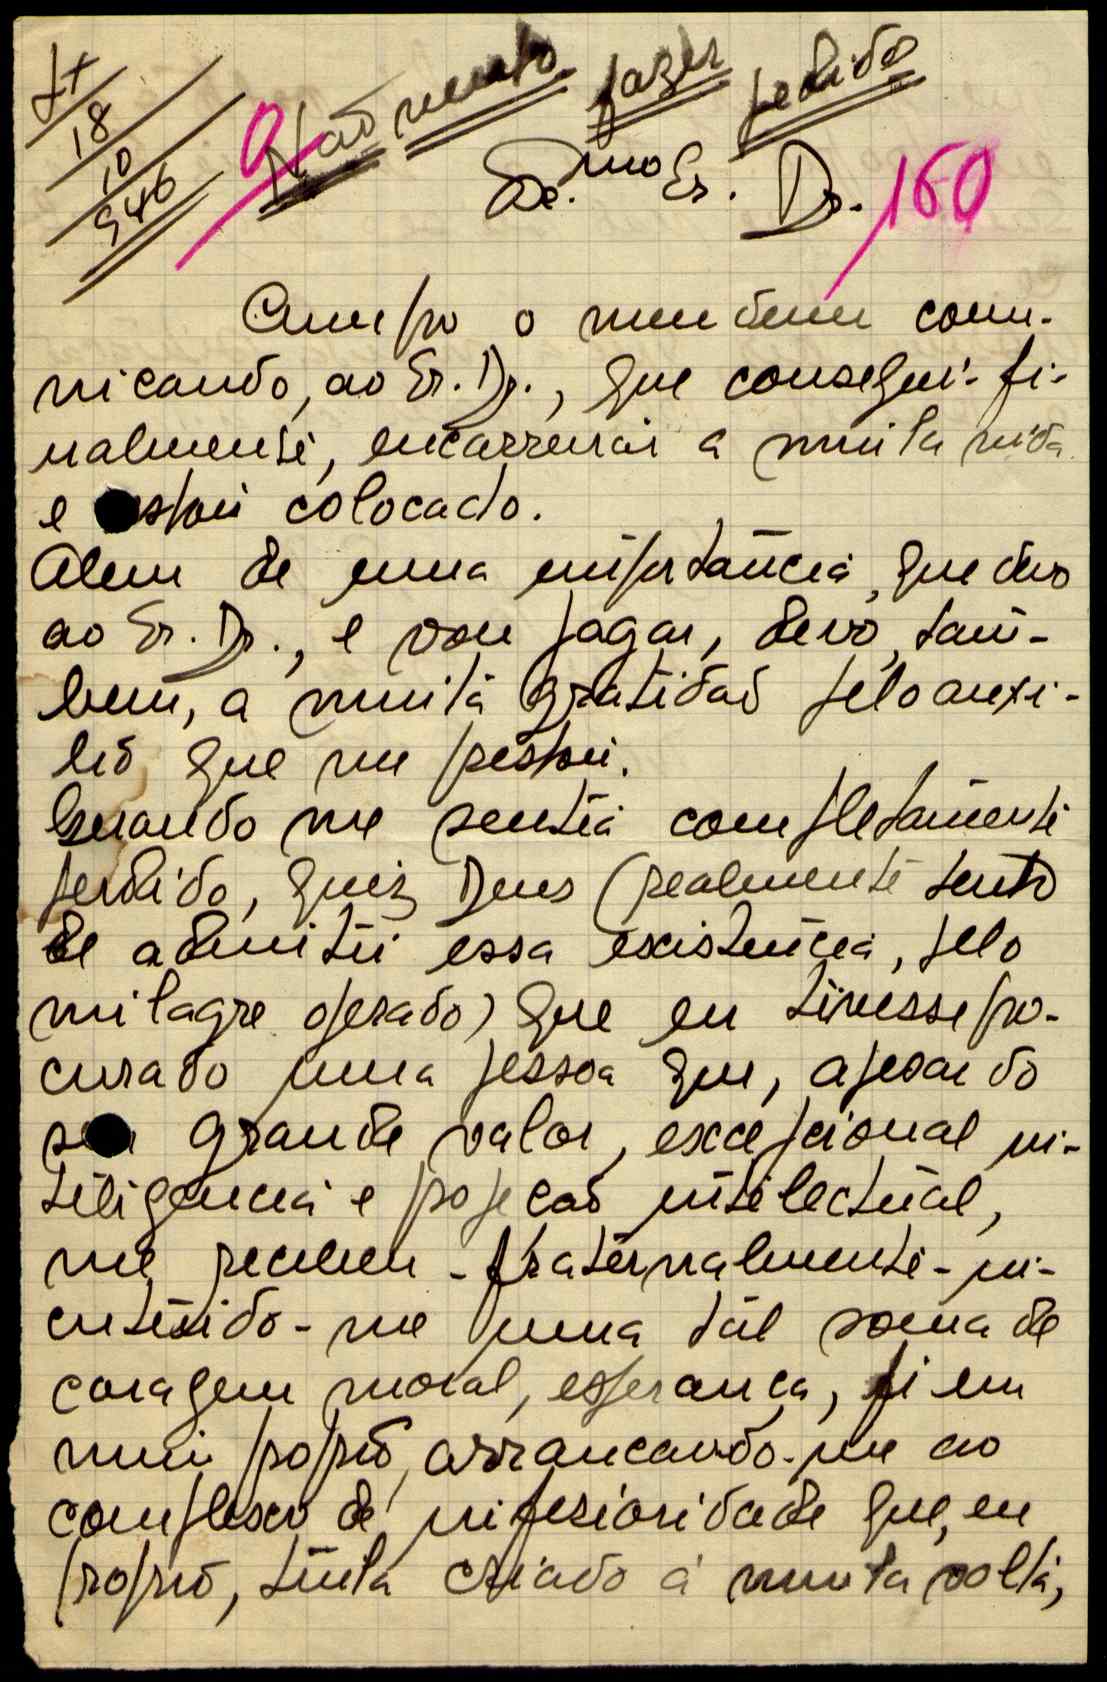 Lx
18
10
946
Não fazer pedido
Ex.mo Sr. Dr.
160
Cumpro o meu dever comu-
nicando, ao Sr. Dr., que consegui-fi-
nalmente, encarreirar a minha vida
e estou colocado.
Alem de uma importância, que devo
ao Sr. Dr., e vou pagar, devo, tam-
bem, a minha gratidão pelo auxi-
lio que me prestou.
Quando me sentia completamente
perdido, quiz Deus (realmente tento
de admitir essa existência, pelo
milagre operado) que eu tivesse pro-
curado uma pessoa que, apesar do
seu grande valor, excepcional in-
teligencia e projecão intelectual,
me recebeu - fraternalmente - in-
cutindo-me uma tal soma de
coragem moral, esperança, fi em
mim proprio, arrancando-me ao
complexo de inferioridade que, eu
proprio, tinha criado á minha volta,